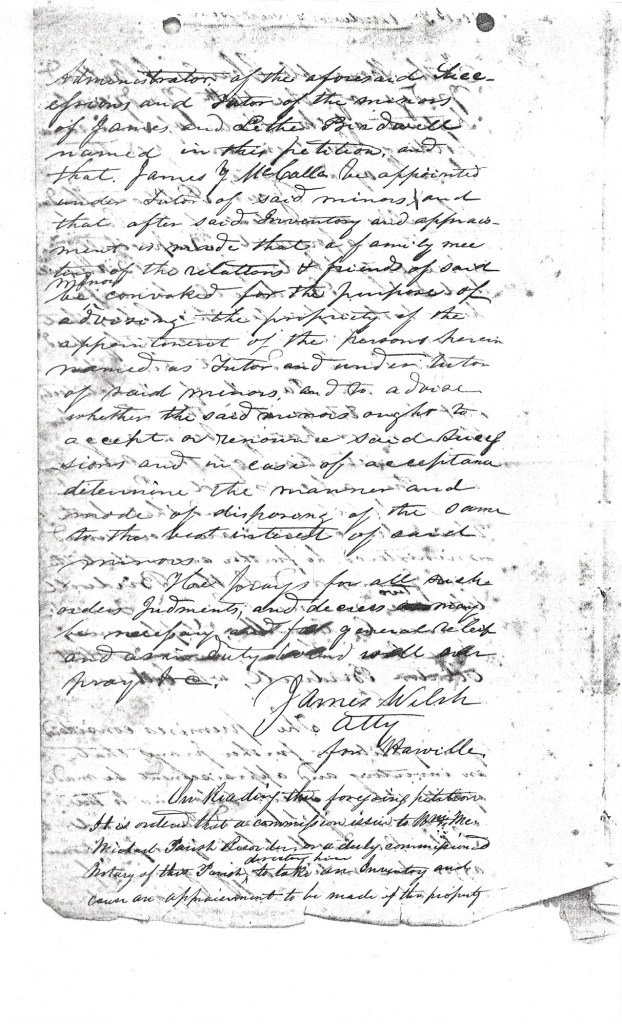 Administrator of the aforesaid Succe-
ssions and Tutor of the minors
of James and Lethe Bradwell
named in this petition, and
that James Y. McCalla be appointed
under Tutor of said minors, and
that after said Inventory and appraise-
ment is made that a family mee
ting of the relations & friends of said
minors
be convoked for the purpose of
advising the propriety of the
appointment of the persons herein
named as Tutor and under tutor
of said minors, and to advise
whether the said minors ought to
accept or renounce said Succes
sions and in case of acceptance
determine the manner and
mode of disposing of the same
to the best interest of said
minors
prays for all such
orders Judgments, and decrees as may
be necessary and for general relief
and as in duty bound will ever
pray &c.
James Welsh
Atty
for
On Reading the foregoing petition
It is ordered that a commission issue to Mc
Michael Parish Recorder or a duly commissioned
directing him
Notary of this Parish, to take an Inventory and
cause an appraisement to be made of the property